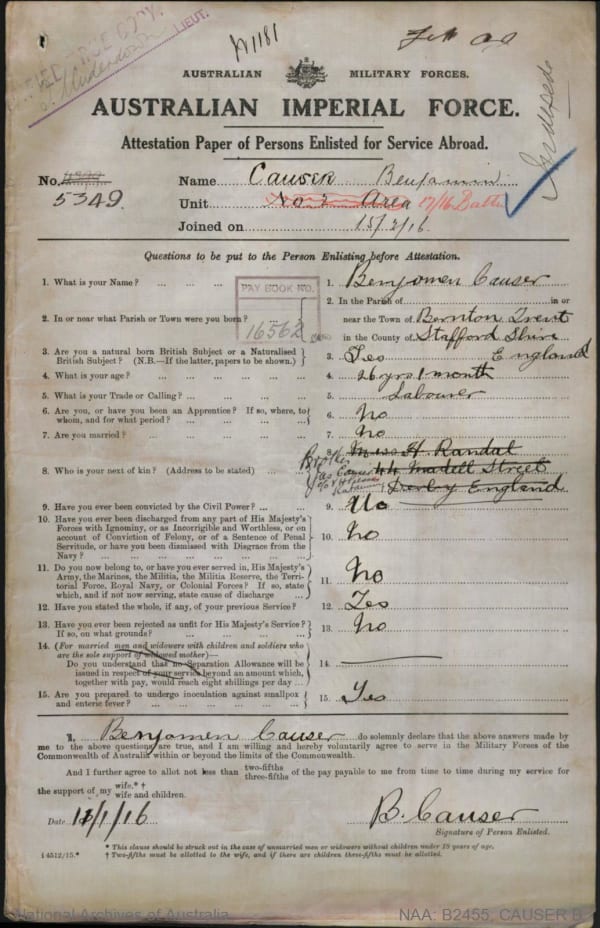 N1181
LIEUT.
AUSTRALIAN MILITARY FORCES.
AUSTRALIAN IMPERIAL FORCE.
Attestation Paper of Persons Enlisted for Service Abroad.
No.
5349.
Name Causer Benjamin
Unit No 2 Area 17/16 Battn
Joined on 15/2/16
Questions to be put to the Person Enlisting before Attestation.
1. What is your Name? ... ... ... 1. Benjomen Causer
PAY BOOK NO.
16562
2. In or near what Parish or Town were you born? 2. In the Parish of in or
near the Town of Bernton Trent
in the County of Stafford Shire
England
3. Are you a natural born British Subject or a Naturalised British Subject? (N.B.—If the latter, papers to be shown.) 3. Yes
4. What is your age? ... ... ... 4. 26 yrs 1 month
5. What is your Trade or Calling? ... ... ... 5. Labourer
6. Are you, or have you been an Apprentice? If so, where, to
whom, and for what period? ... ... ... 6. No
7. Are you married? ... ... ... 7. No
8. Who is your next of kin? (Address to be stated) ... 8. Miss H. Randal
44 Madell Street
Derby England
Brother
Jas Causer
9. Have you ever been convicted by the Civil Power? ... ... 9. No
10. Have you ever been discharged from any part of His Majesty's
Forces with Ignominy, or as Incorrigible and Worthless, or on
account of Conviction of Felony, or of a Sentence of Penal
Servitude, or have you been dismissed with Disgrace from the
Navy? ... ... ... 10. No
11. Do you now belong to, or have you ever served in, His Majesty's
Army, the Marines, the Militia, the Militia Reserve, the Terri-
torial Force, Royal Navy, or Colonial Forces? If so, state
which, and if not now serving, state cause of discharge ... 11. No
12. Have you stated the whole, if any, of your previous Service? 12. Yes
13. Have you ever been rejected as unfit for His Majesty's Service?
If so, on what grounds? ... ... ... 13. No
14. (For married men and widowers with children and soldiers who
are the sole support of widowed mother)—
Do you understand that no Separation Allowance will be
issued in respect of your service beyond an amount which,
together with pay, would reach eight shillings per day ... 14.
15. Are you prepared to undergo inoculation against smallpox
and enteric fever? ... ... ... 15. Yes
I, Benjomen Causer do solemnly declare that the above answers made by
me to the above questions are true, and I am willing and hereby voluntarily agree to serve in the Military Forces of the
Commonwealth of Australia within or beyond the limits of the Commonwealth.
And I further agree to allot not less than two-fifths three-fifths of the pay payable to me from time to time during my service for
the support of my wife.* † wife and children.
Date 11/1/16 B. Causer
Signature of Person Enlisted.
14512/15.* * This clause should be struck out in the case of unmarried men or widowers without children under 18 years of age.
† Two-fifths must be allotted to the wife, and if there are children three-fifths must be allotted.
National Archives of Australia NAA: B2455, CAUSER B